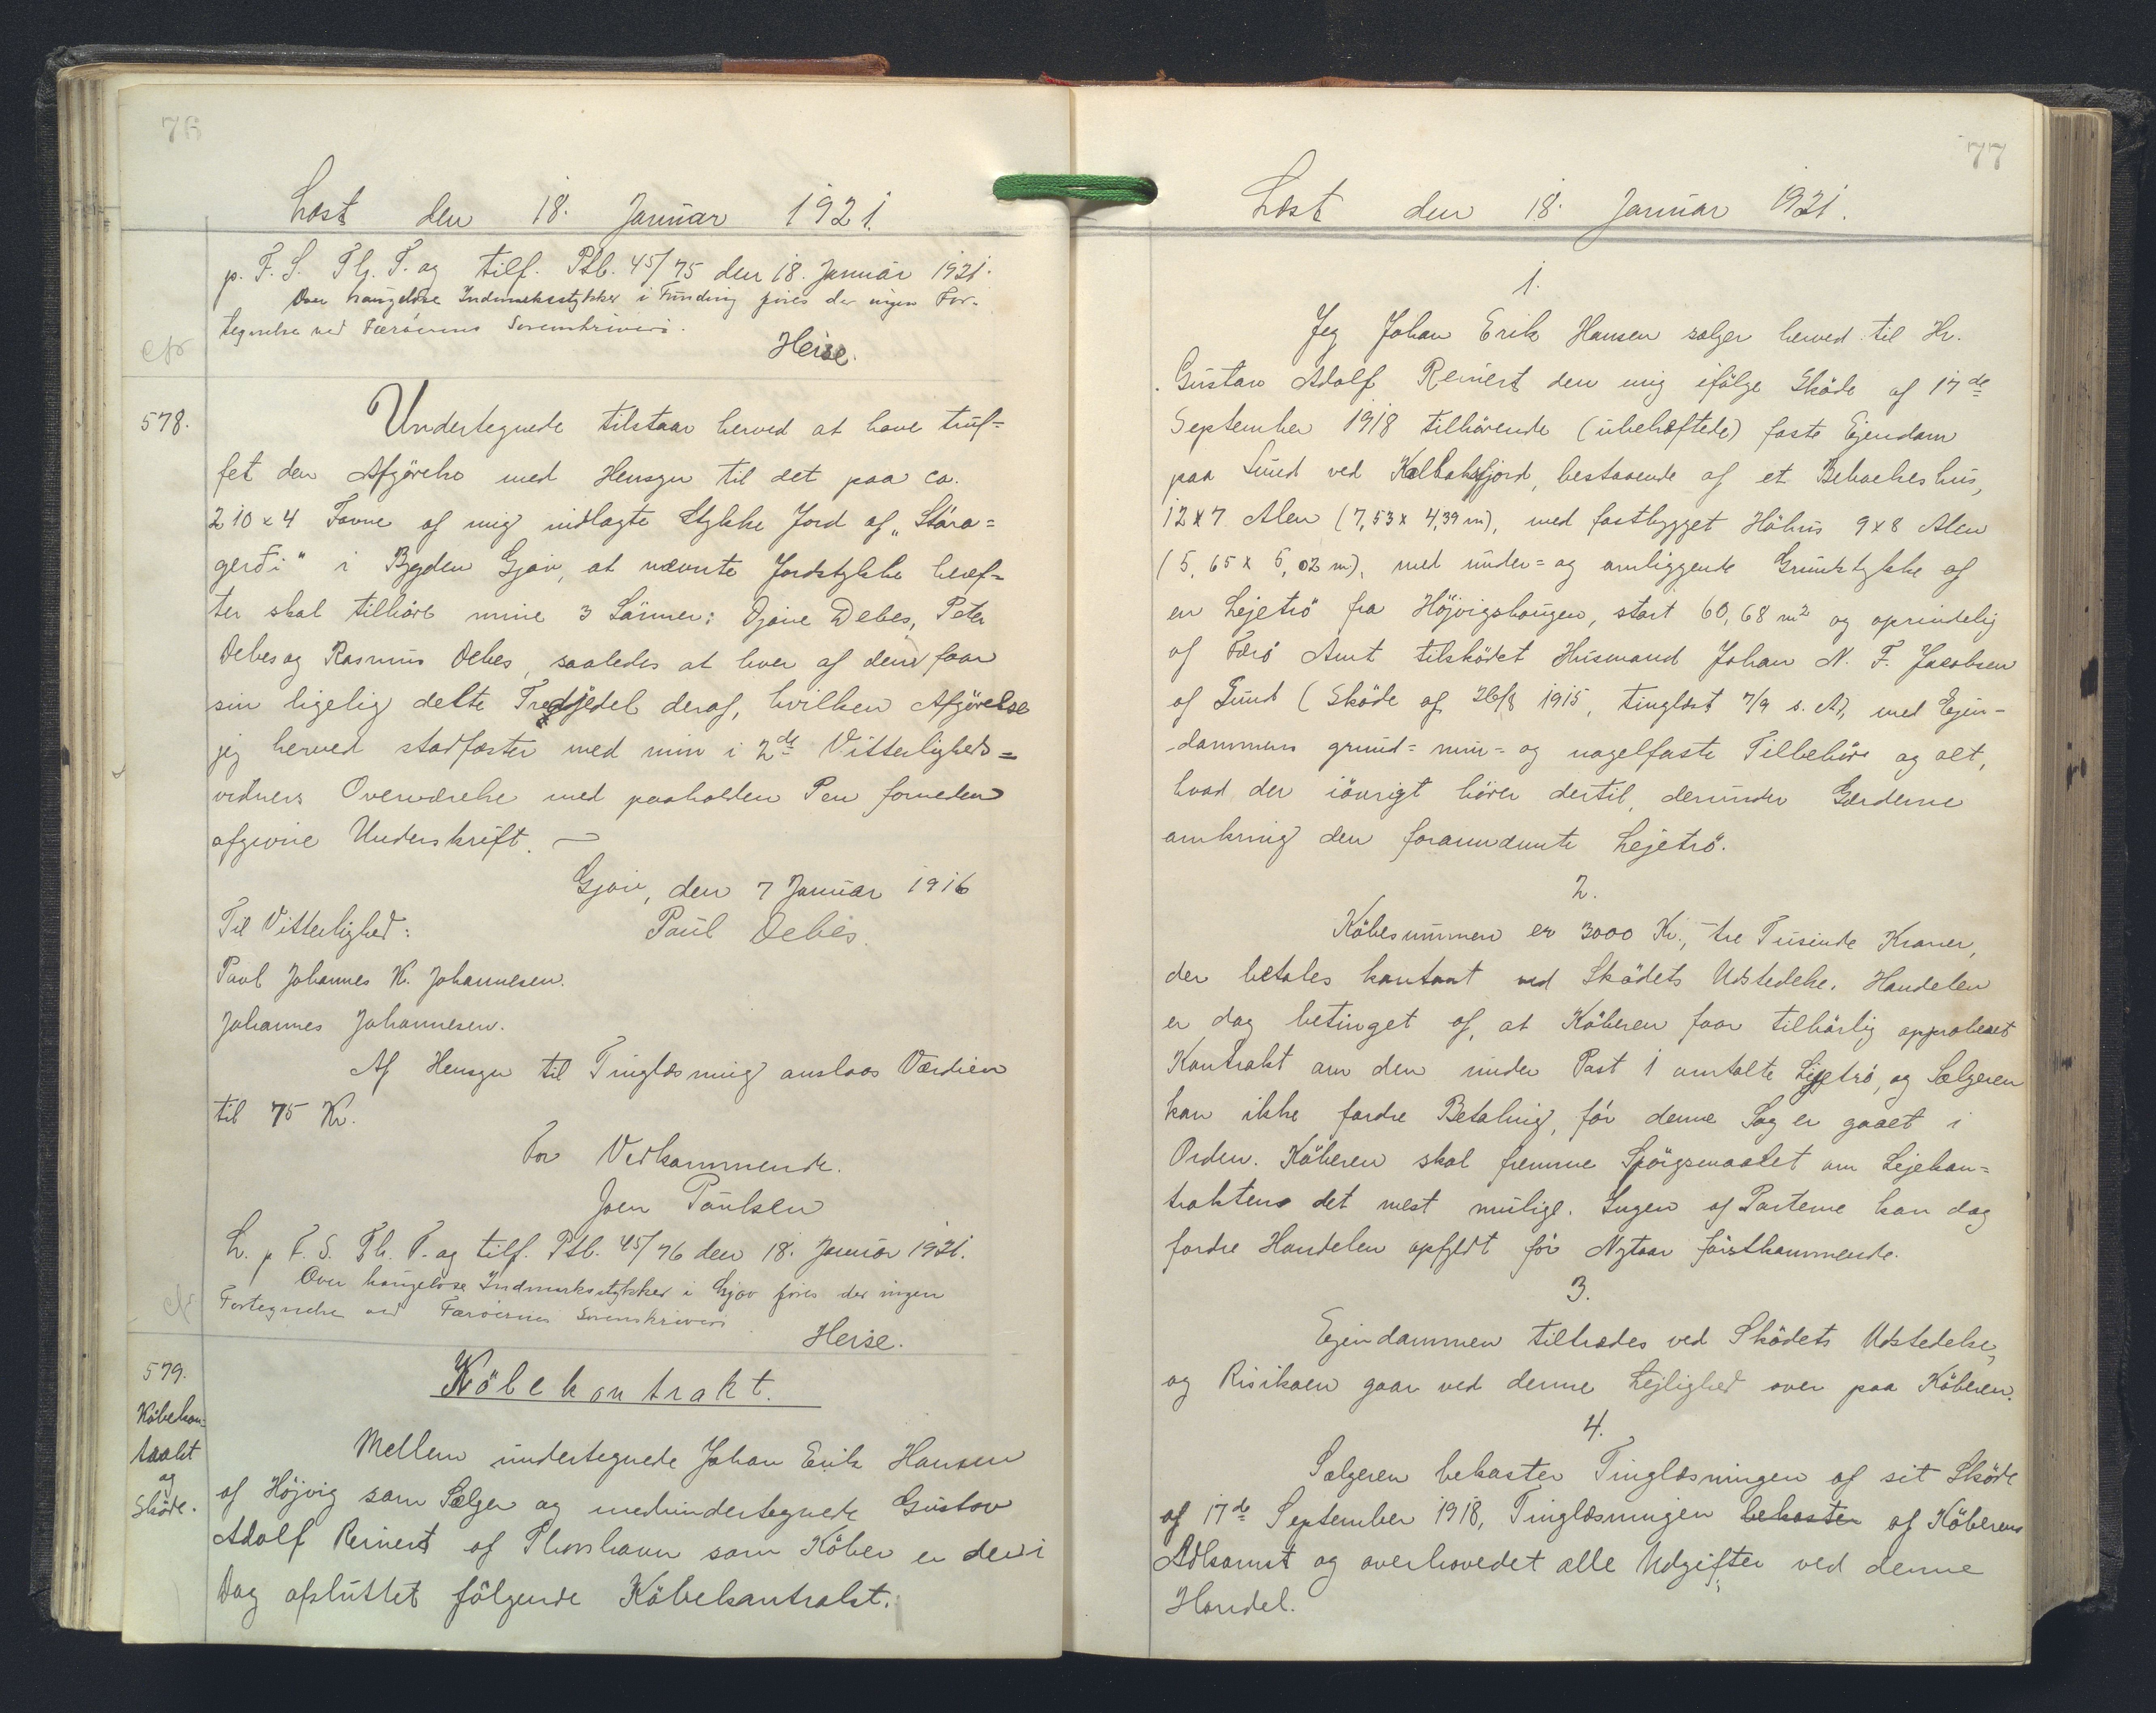 76
Læst den 18. Januar 1921.
p. F. S. Tlg. T. og tilf. Ptb. 45/75 den 18. Januar 1921.
Over haugeløse Indmarksstykker i Funding føres der ingen For-
tegnelse ved Færøernes Sorenskriveri.
Heise.
cfr
578.
Undertegnede tilstaar herved at have truf-
fet den Afgörelse med Hensyn til det paa ca.
210 x 4 Favne af mig indlagte Stykke Jord af „Stóra-
gerði" i Bygden Gjov, at nævnte Jordstykke heref-
ter skal tilhöre mine 3 Sönner: Djone Debes, Peter
Debes og Rasmus Debes, saaledes at hver af dem faar
sin ligelig delte Tredjedel deraf, hvilken Afgörelse
jeg herved stadfæster med min i 2de Vitterligheds-
vidners Overværelse med paaholden Pen forneden
afgivne Underskrift. —
Gjov, den 7 Januar 1916
Til Vitterlighed:
Paul Debes.
Paul Johannes K. Johannesen.
Johannes Johannesen.
Af Hensyn til Tinglæsning anslaas Værdien
til 75 Kr.
For Vedkommende.
Joen Paulsen
L. p F. S. Th. T. og tilf. Ptb. 45/76 den 18. Januar 1921.
Over haugeløse Indmarksstykker i Gjov føres der ingen
Fortegnelse ved Færøernes Sorenskriveri
Heise.
cfr
579.
Köbekon-
trakt
og
Sköde.
Köbekontrakt.
Mellem undertegnede Johan Erik Hansen
af Höjvig som Sælger og medundertegnede Gustav
Adolf Reinert af Thorshavn som Köber er den i
Dag afsluttet fölgende Köbekontrakt.
77
Læst den 18. Januar 1921.
1.
Jeg Johan Erik Hansen sælger herved til Hr.
Gustav Adolf Reinert den mig ifölge Sköde af 17de
September 1918 tilhörende (ubehæftede) faste Ejendom
paa Sund ved Kalbaksfjord, bestaaende af et Beboelseshus,
12 x 7 Alen (7,53 x 4,39 m), med fastbygget Höhus 9 x 8 Alen
(5,65 x 5,02 m), med under- og omliggende Grundstykke af
en Lejetrö fra Höjvigshaugen, stort 60,68 m² og oprindelig
af Færö Amt tilsködet Husmand Johan N. F. Jacobsen
af Sund (Sköde af 26/8 1915, tinglæst 7/9 s. A), med Ejen-
dommens grund- mur- og nagelfaste Tilbehör og alt,
hvad der iövrigt hörer dertil, derunder Gærderne
omkring den forannævnte Lejetrö.
2.
Köbesummen er 3000 Kr., tre Tusinde Kroner,
der betales kontant ved Sködets Udstedelse. Handelen
er dog betinget af, at Köberen faar tilbörlig approberet
Kontrakt om den under Post 1 omtalte Lejetrö, og Sælgeren
kan ikke fordre Betaling, för denne Sag er gaaet i
Orden. Köberen skal fremme Spörgsmaalet om Lejekon-
traktens det mest mulige. Ingen af Parterne kan dog
fordre Handelen opfyldt för Nytaar förstkommende.
3.
Ejendommen tiltrædes ved Sködets Udstedelse,
og Risikoen gaar ved denne Lejlighed over paa Köberen.
4.
Sælgeren bekoster Tinglæsningen af sit Sköde
af 17de September 1918, Tinglæsningen bekoster af Köberens
Adkomst og overhovedet alle Udgifter ved denne
Handel.